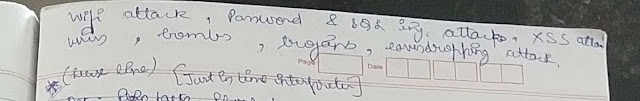 wifi attack, Password & SQL inj. attacks, XSS attac
virus, bombs, trojans, eavesdropping attack.
Page Date
* (line) [Just in time interpreter]